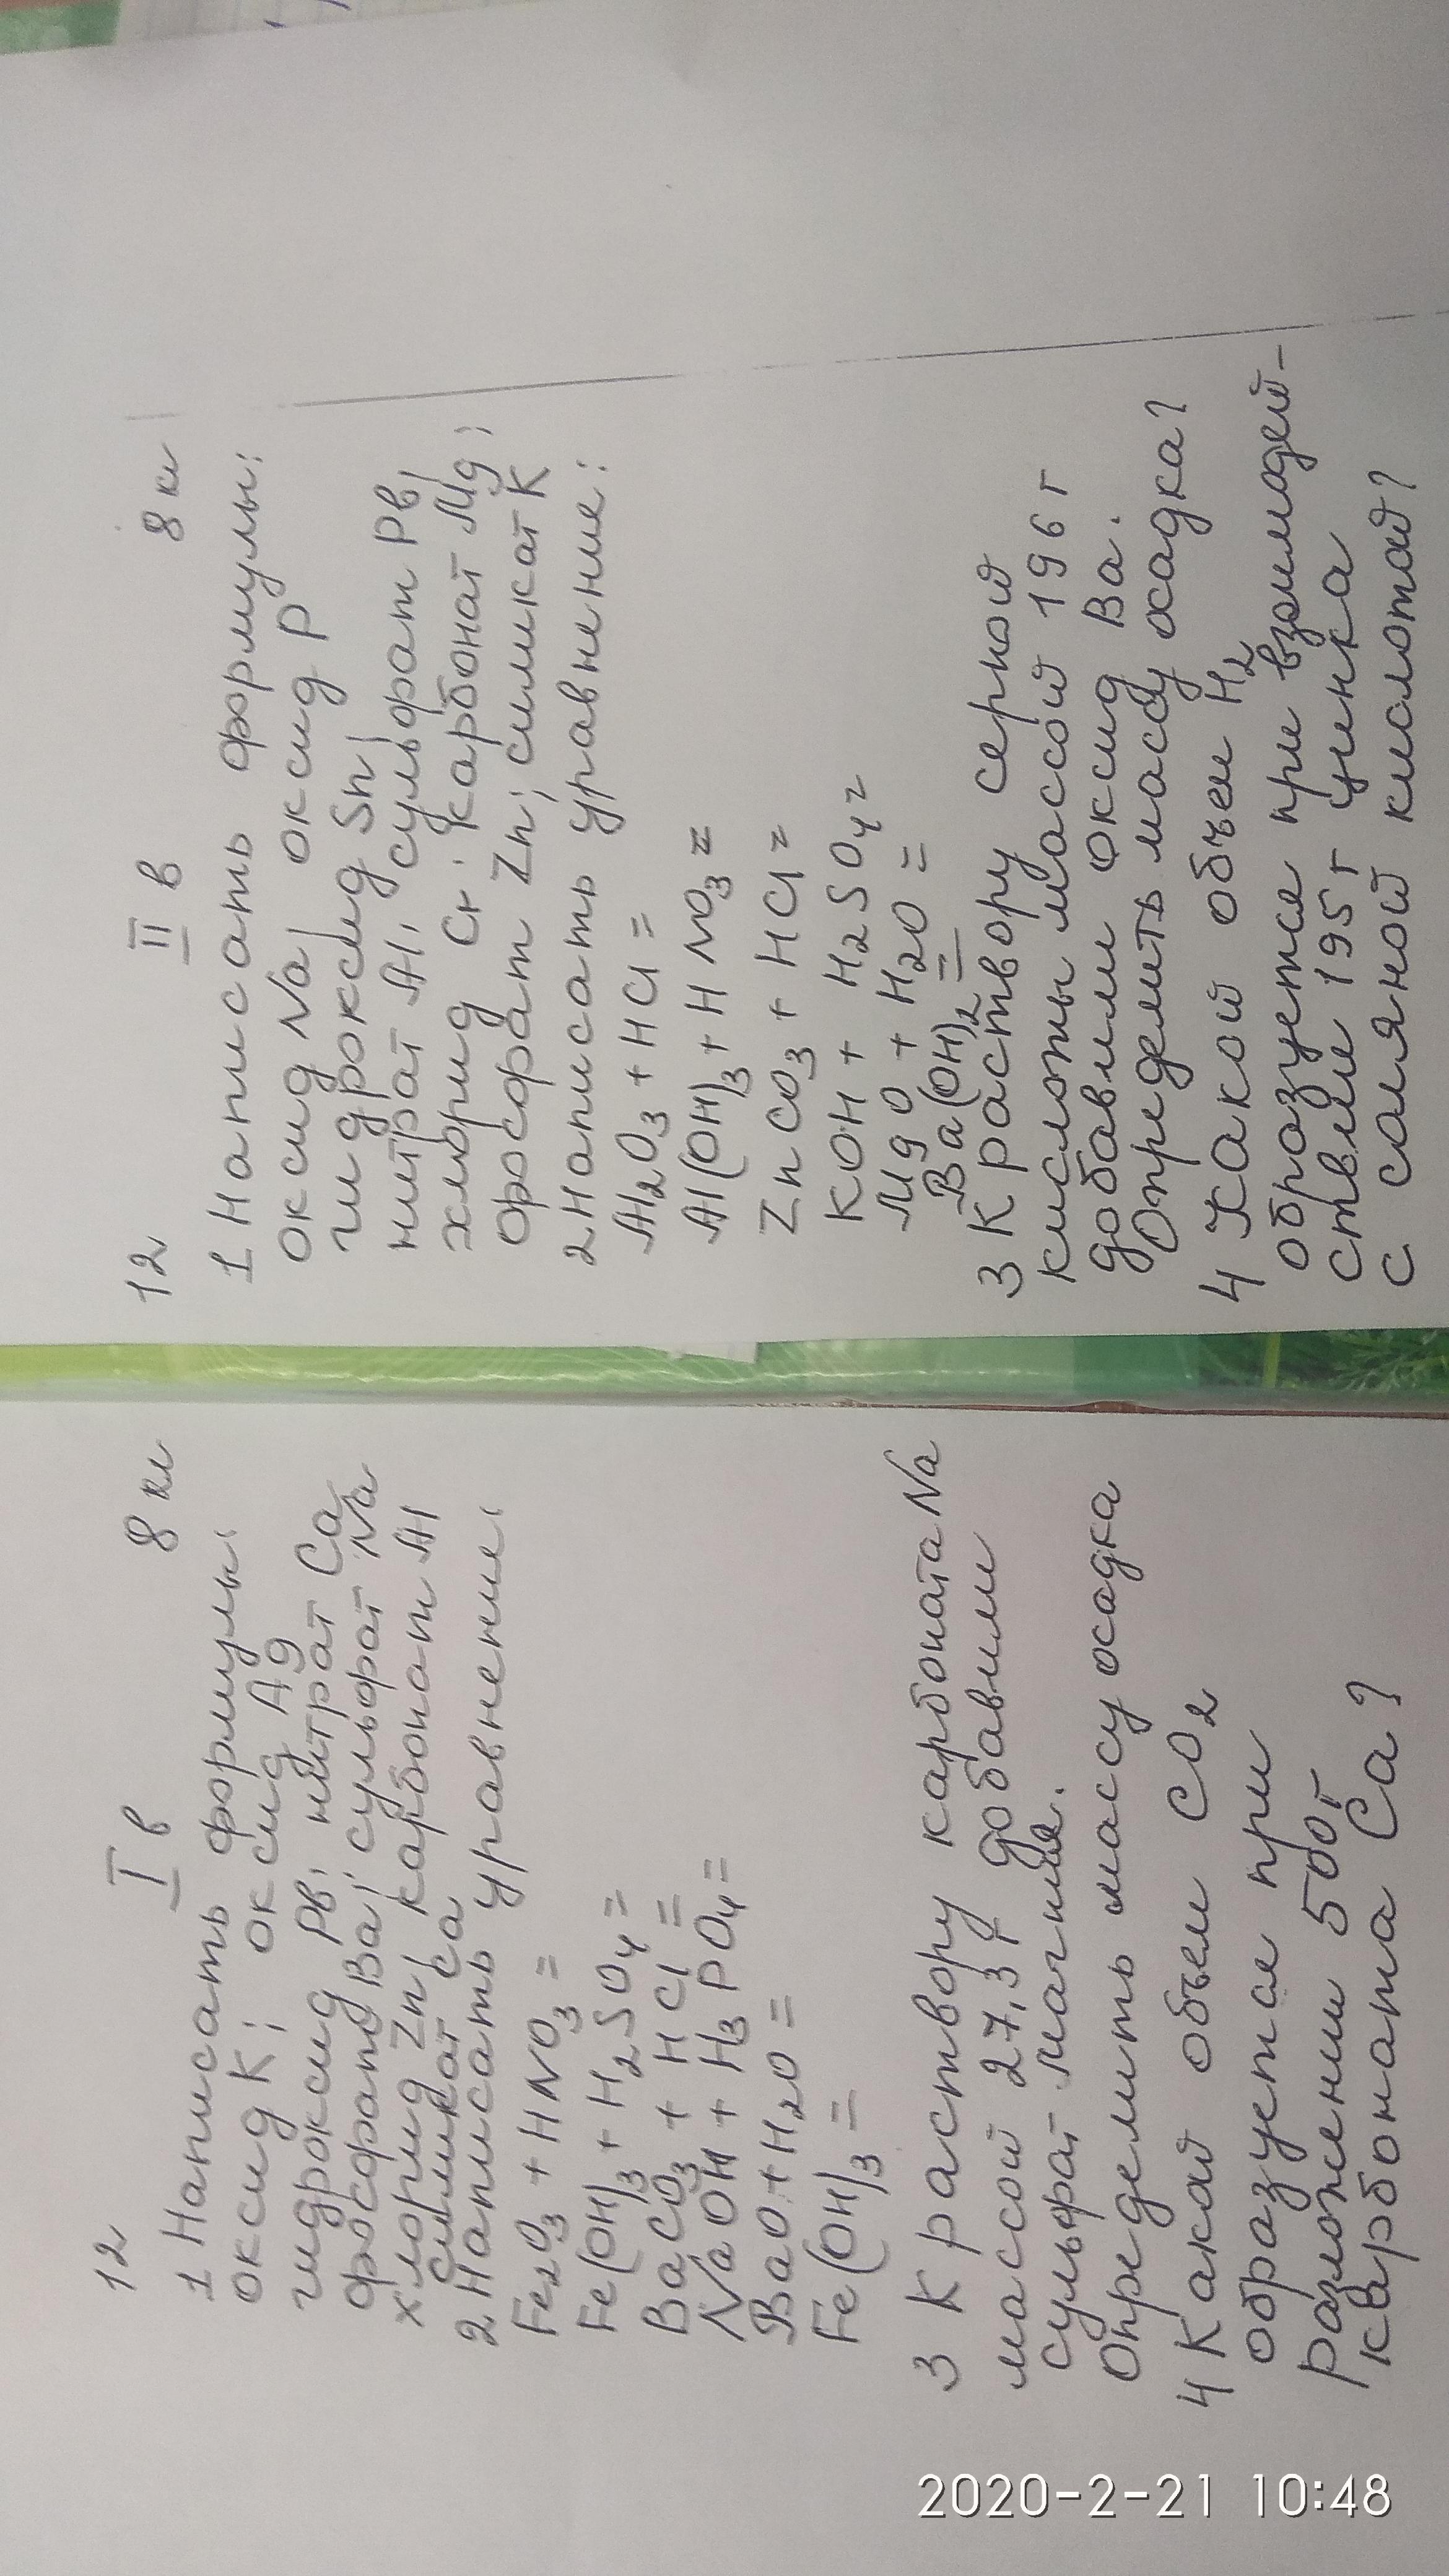 12 I в 8 кл
1 Написать формулы:
оксид K; оксид Ag
гидроксид Pb; нитрат Ca
фосфат Ba; сульфат Na
хлорид Zn; карбонат Al
силикат Ca
2 Написать уравнения:
Fe2O3 + HNO3 =
Fe(OH)3 + H2SO4 =
BaCO3 + HCl =
NaOH + H3PO4 =
BaO + H2O =
Fe(OH)3 =
3 К раствору карбоната Na
массой 27,3 г добавили
сульфат магния.
Определить массу осадка
4 Какой объем CO2
образуется при
разложении 500г
карбоната Ca?
12 II в 8 кл
1 Написать формулы:
оксид Na; оксид P
гидроксид Sn;
нитрат Al; сульфат Pb;
хлорид Cr; карбонат Mg;
фосфат Zn; силикат K
2 Написать уравнение:
Al2O3 + HCl =
Al(OH)3 + HNO3 =
ZnCO3 + HCl =
KOH + H2SO4 =
MgO + H2O =
Ba(OH)2 =
3 К раствору серной
кислоты массой 196 г
добавили оксид Ba.
Определить массу осадка?
4 Какой объем H2
образуется при взаимодей-
ствии 195 г цинка
с соляной кислотой?
2020-2-21 10:48